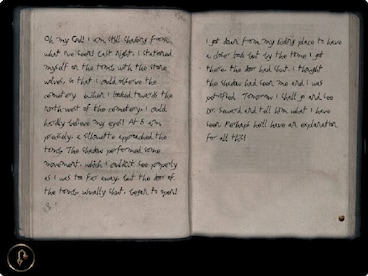 Oh my God! I am still shaking from
what I've seen! Last night, I stationed
myself on the tomb with the stone
wolves, so that I could observe the
cemetery. When I looked towards the
north-west of the cemetery, I could
hardly believe my eyes! At 5 a.m.
precisely, a silhouette approached the
tomb. The shadow performed some
movement, which I couldn't see properly
as I was too far away, but the door of
the tomb, usually shut, began to open!
I got down from my hiding place to have
a closer look but by the time I got
there the door had shut. I thought
the shadow had seen me and I was
petrified. Tomorrow I shall go and see
Dr. Seward and tell him what I have
seen. Perhaps he'll have an explanation
for all this!